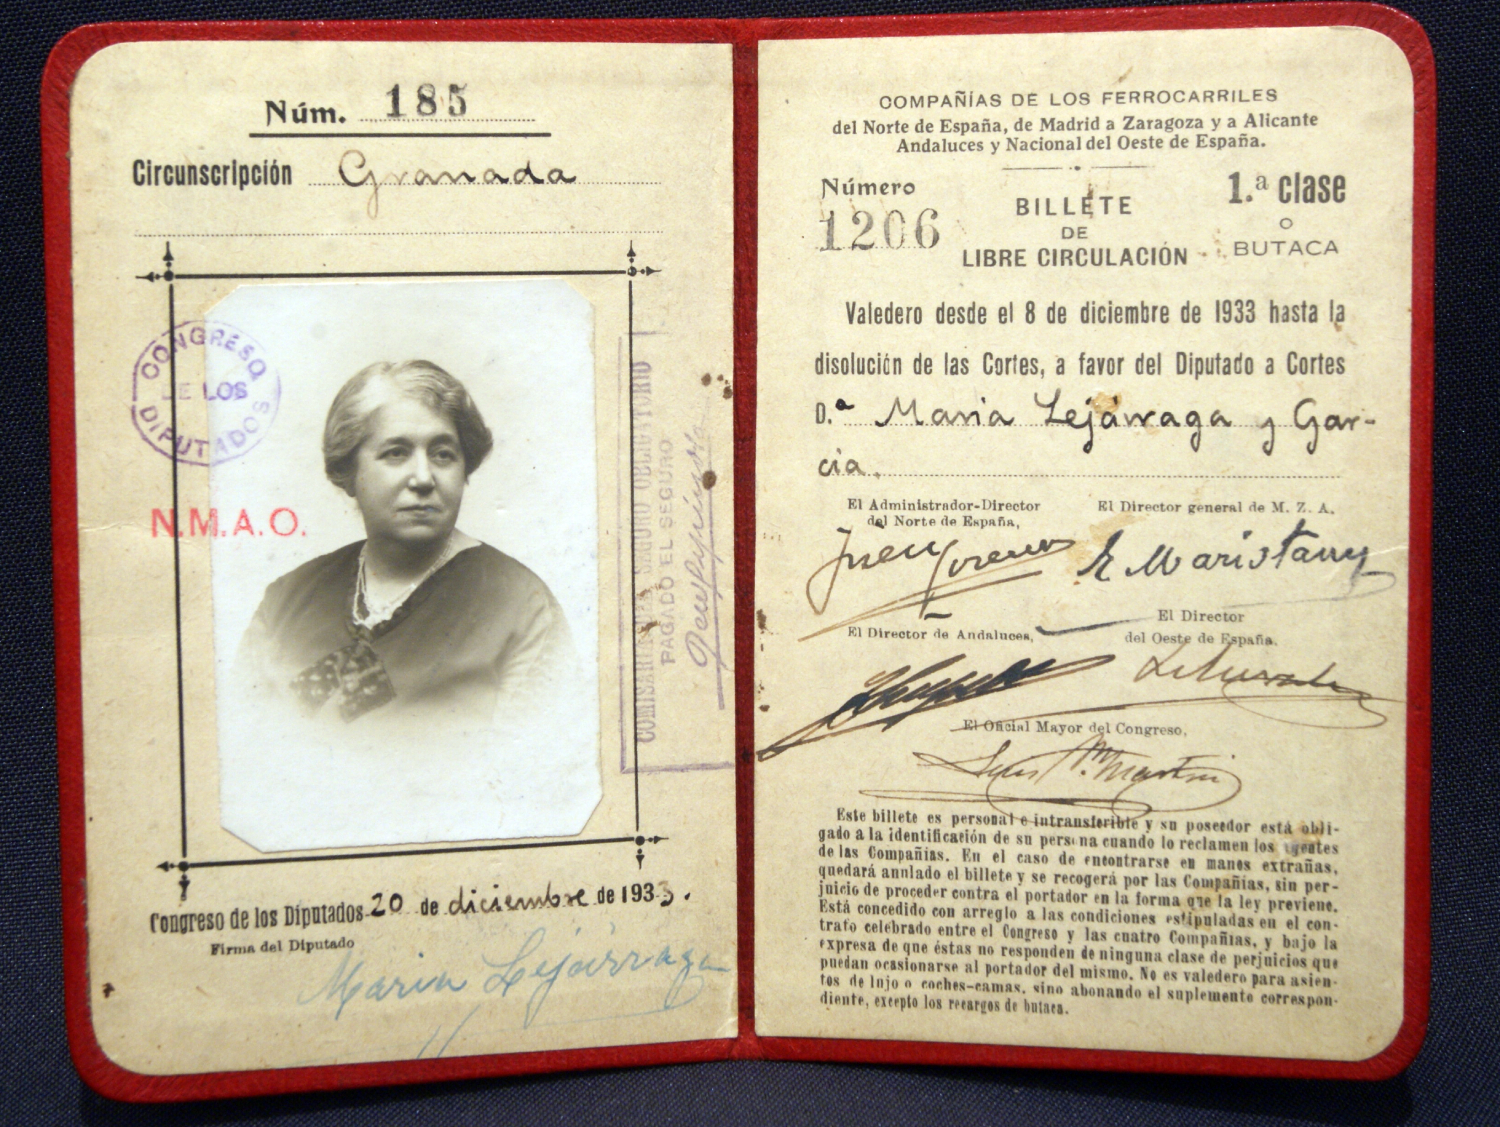 Núm. 185
Circunscripción Granada
CONGRESO
DE LOS
DIPUTADOS
N.M.A.O.
COMISARIA DEL SEGURO OBLIGATORIO
PAGADO EL SEGURO
Congreso de los Diputados 20 de diciembre de 1933.
Firma del Diputado
Maria Lejárraga
COMPAÑÍAS DE LOS FERROCARRILES
del Norte de España, de Madrid a Zaragoza y a Alicante
Andaluces y Nacional del Oeste de España.
Número
1206
BILLETE
DE
LIBRE CIRCULACIÓN
1.ª clase
O
BUTACA
Valedero desde el 8 de diciembre de 1933 hasta la
disolución de las Cortes, a favor del Diputado a Cortes
D.ª Maria Lejárraga y Gar-
cia.
El Administrador-Director
del Norte de España,
El Director general de M. Z. A.
E Maristany
El Director de Andaluces,
El Director
del Oeste de España.
El Oficial Mayor del Congreso,
Luis Mª. Martín
Este billete es personal e intransferible y su poseedor está obli-
gado a la identificación de su persona cuando lo reclamen los agentes
de las Compañías. En el caso de encontrarse en manos extrañas,
quedará anulado el billete y se recogerá por las Compañías, sin per-
juicio de proceder contra el portador en la forma que la ley previene.
Está concedido con arreglo a las condiciones estipuladas en el con-
trato celebrado entre el Congreso y las cuatro Compañías, y bajo la
expresa de que éstas no responden de ninguna clase de perjuicios que
puedan ocasionarse al portador del mismo. No es valedero para asien-
tos de lujo o coches-camas, sino abonando el suplemento correspon-
diente, excepto los recargos de butaca.